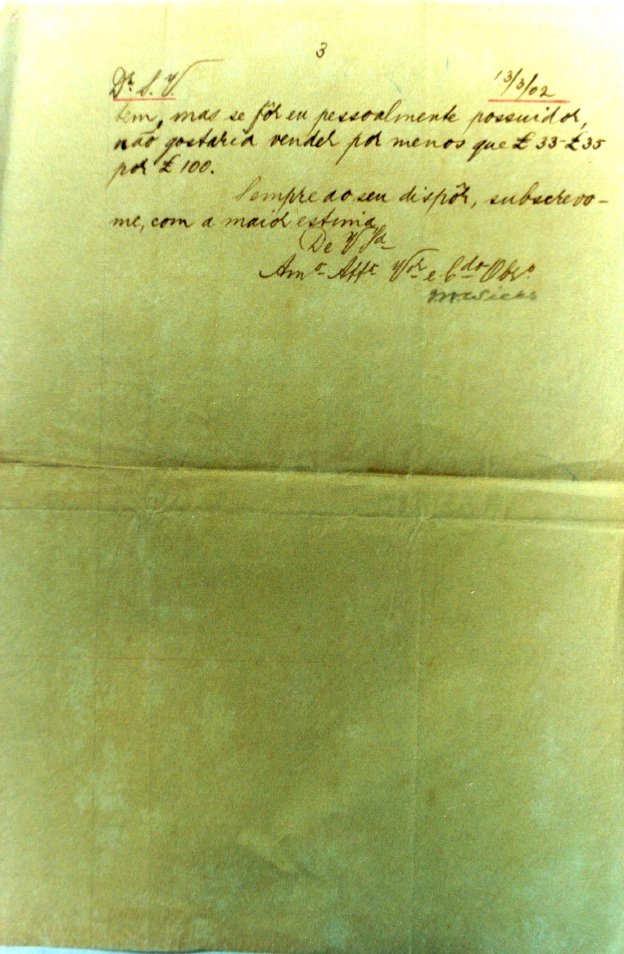 3
Dr. S. V. 13/3/02
tem, mas se fôr eu pessoalmente possuidor,
não gostaria vender por menos que £ 33-£ 35
por £ 100.
Sempre ao seu dispôr, subscrevo-
me, com a maior estima
De V Sa
Amo Affo Vor e Cdo Obro